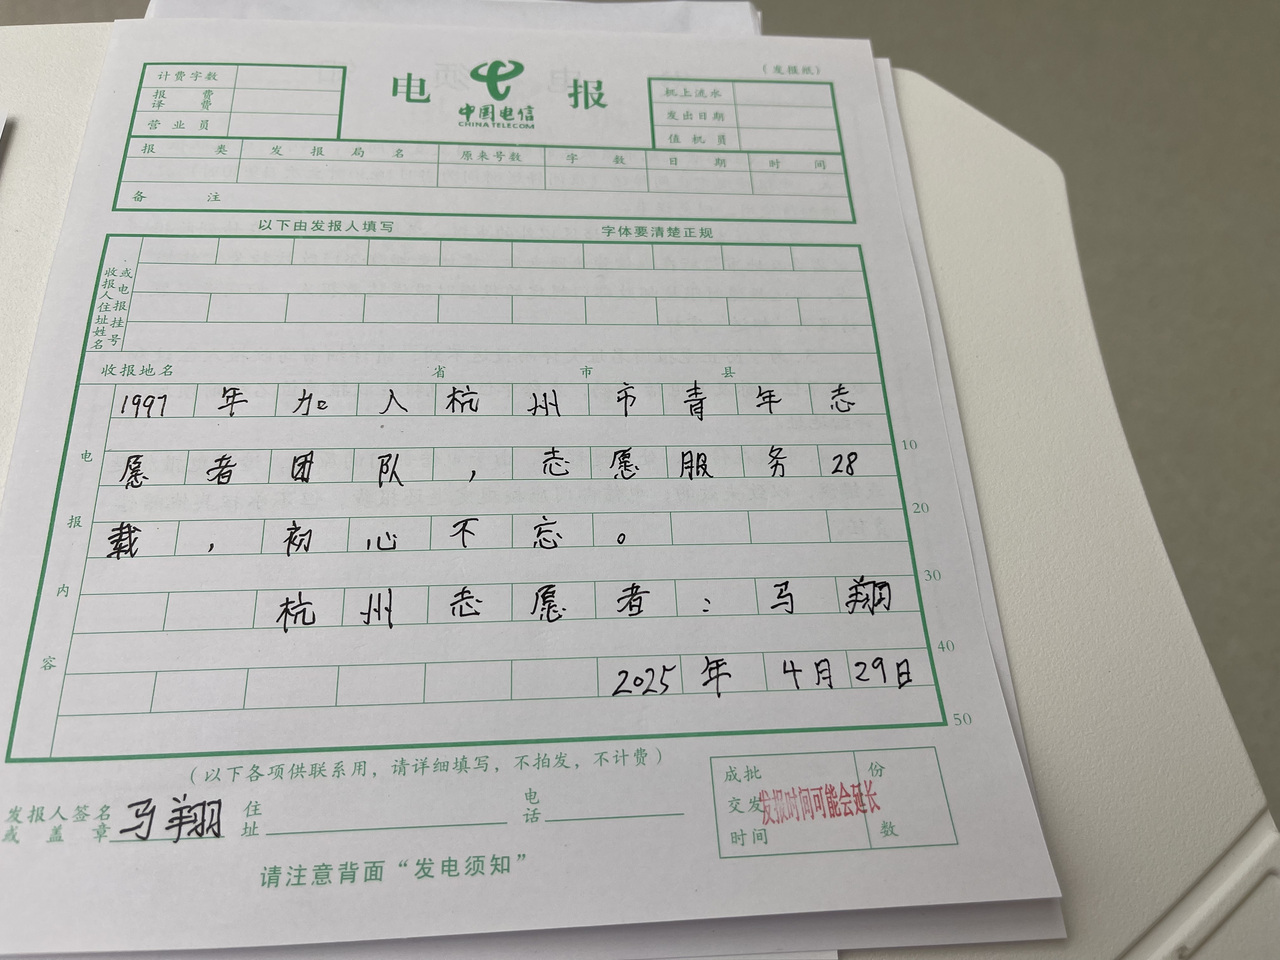 (发报纸)
计费字数
报费
译费
营业员
电 中国电信 报
CHINA TELECOM
机上流水
发出日期
值机员
报类 发报局名 原来号数 字数 日期 时间
备注
以下由发报人填写 字体要清楚正规
收报人住址姓名
或电报挂号
收报地名 省 市 县
电报内容
1997年加入杭州市青年志
10
愿者团队，志愿服务28
20
载，初心不忘。
30
杭州志愿者：马翔
40
2025年4月29日
50
(以下各项供联系用，请详细填写，不拍发，不计费)
发报人签名
或盖章 马翔 住址 电话
成批 份数
交发时间
发报时间可能会延长
请注意背面“发电须知”